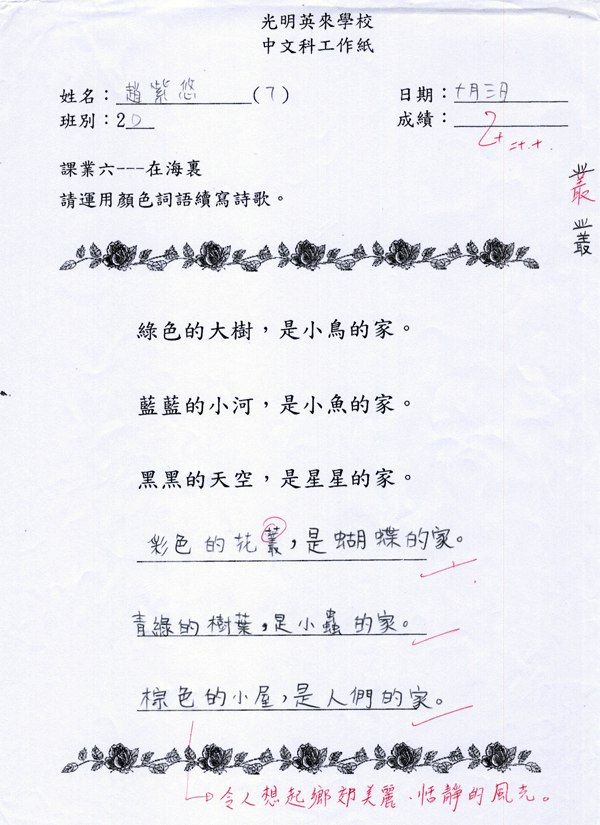 光明英來學校
中文科工作紙
姓名：趙紫悠(7)
日期：十月三日
班別：2D
成績：
課業六---在海裏
請運用顏色詞語續寫詩歌。
叢
叢
綠色的大樹，是小鳥的家。
藍藍的小河，是小魚的家。
黑黑的天空，是星星的家。
彩色的花叢，是蝴蝶的家。
青綠的樹葉，是小蟲的家。
棕色的小屋，是人們的家。
令人想起鄉郊美麗、恬靜的風光。